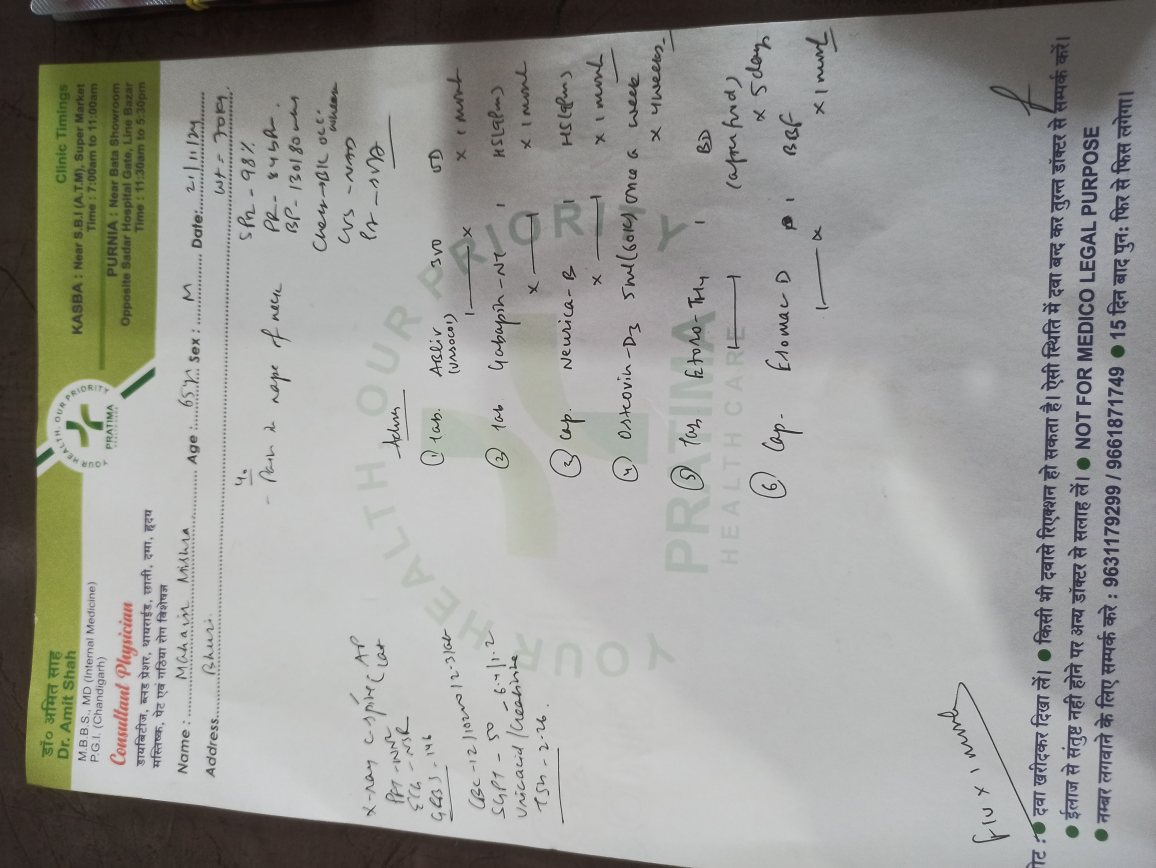 डॉ० अमित साह
Dr. Amit Shah
M.B.B.S., MD (Internal Medicine)
P.G.I. (Chandigarh)
Consultant Physician
डायबिटीज, ब्लड प्रेशर, थायराईड, छाती, दमा, हृदय
मस्तिष्क, पेट एवं गठिया रोग विशेषज्ञ
YOUR HEALTH, OUR PRIORITY
PRATIMA
Clinic Timings
KASBA : Near S.B.I (A.T.M), Super Market
Time : 7:00am to 11:00am
PURNIA : Near Bata Showroom
Opposite Sadar Hospital Gate, Line Bazar
Time : 11:30am to 5:30pm
Name : Mahavir Mishra Age : 65Y Sex : M Date: 21/11/24
Address Bhuri Wt - 70kg
- Pain in nape of neck
SPO2 - 98%
PR - 84bpm
BP - 130/80
CVS - NAD
Advice
① Tab. 300 OD
(Ursocol) x 1 month
② Tab Gabapin-NT 1 HS(9pm)
x 1 month
③ Cap. Neurica-B 1 HS(9pm)
x 1 month
④ Osteovin-D3 5ml (60K) once a week
x 4 weeks
⑤ Tab Etoro-TH4 1 BD
(after food)
x 5 days
⑥ Cap. D 1 BBF
x 1 month
X-ray C-spine (AP
Lat
ECG - NSR
GRBS - 146
SGPT - 50
Uric acid / Creatinine - 6.4 / 1.2
TSH - 2.26
F/U x 1 month
YOUR HEALTH, OUR PRIORITY
PRATIMA
HEALTH CARE
नोट : ● दवा खरीदकर दिखा लें। ● किसी भी दवासे रिएक्शन हो सकता है। ऐसी स्थिति में दवा बन्द कर तुरन्त डॉक्टर से सम्पर्क करें।
● ईलाज से संतुष्ट नही होने पर अन्य डॉक्टर से सलाह लें। ● NOT FOR MEDICO LEGAL PURPOSE
● नम्बर लगवाने के लिए सम्पर्क करे : 9631179299 / 9661871749 ● 15 दिन बाद पुन: फिर से फिस लगेगा।